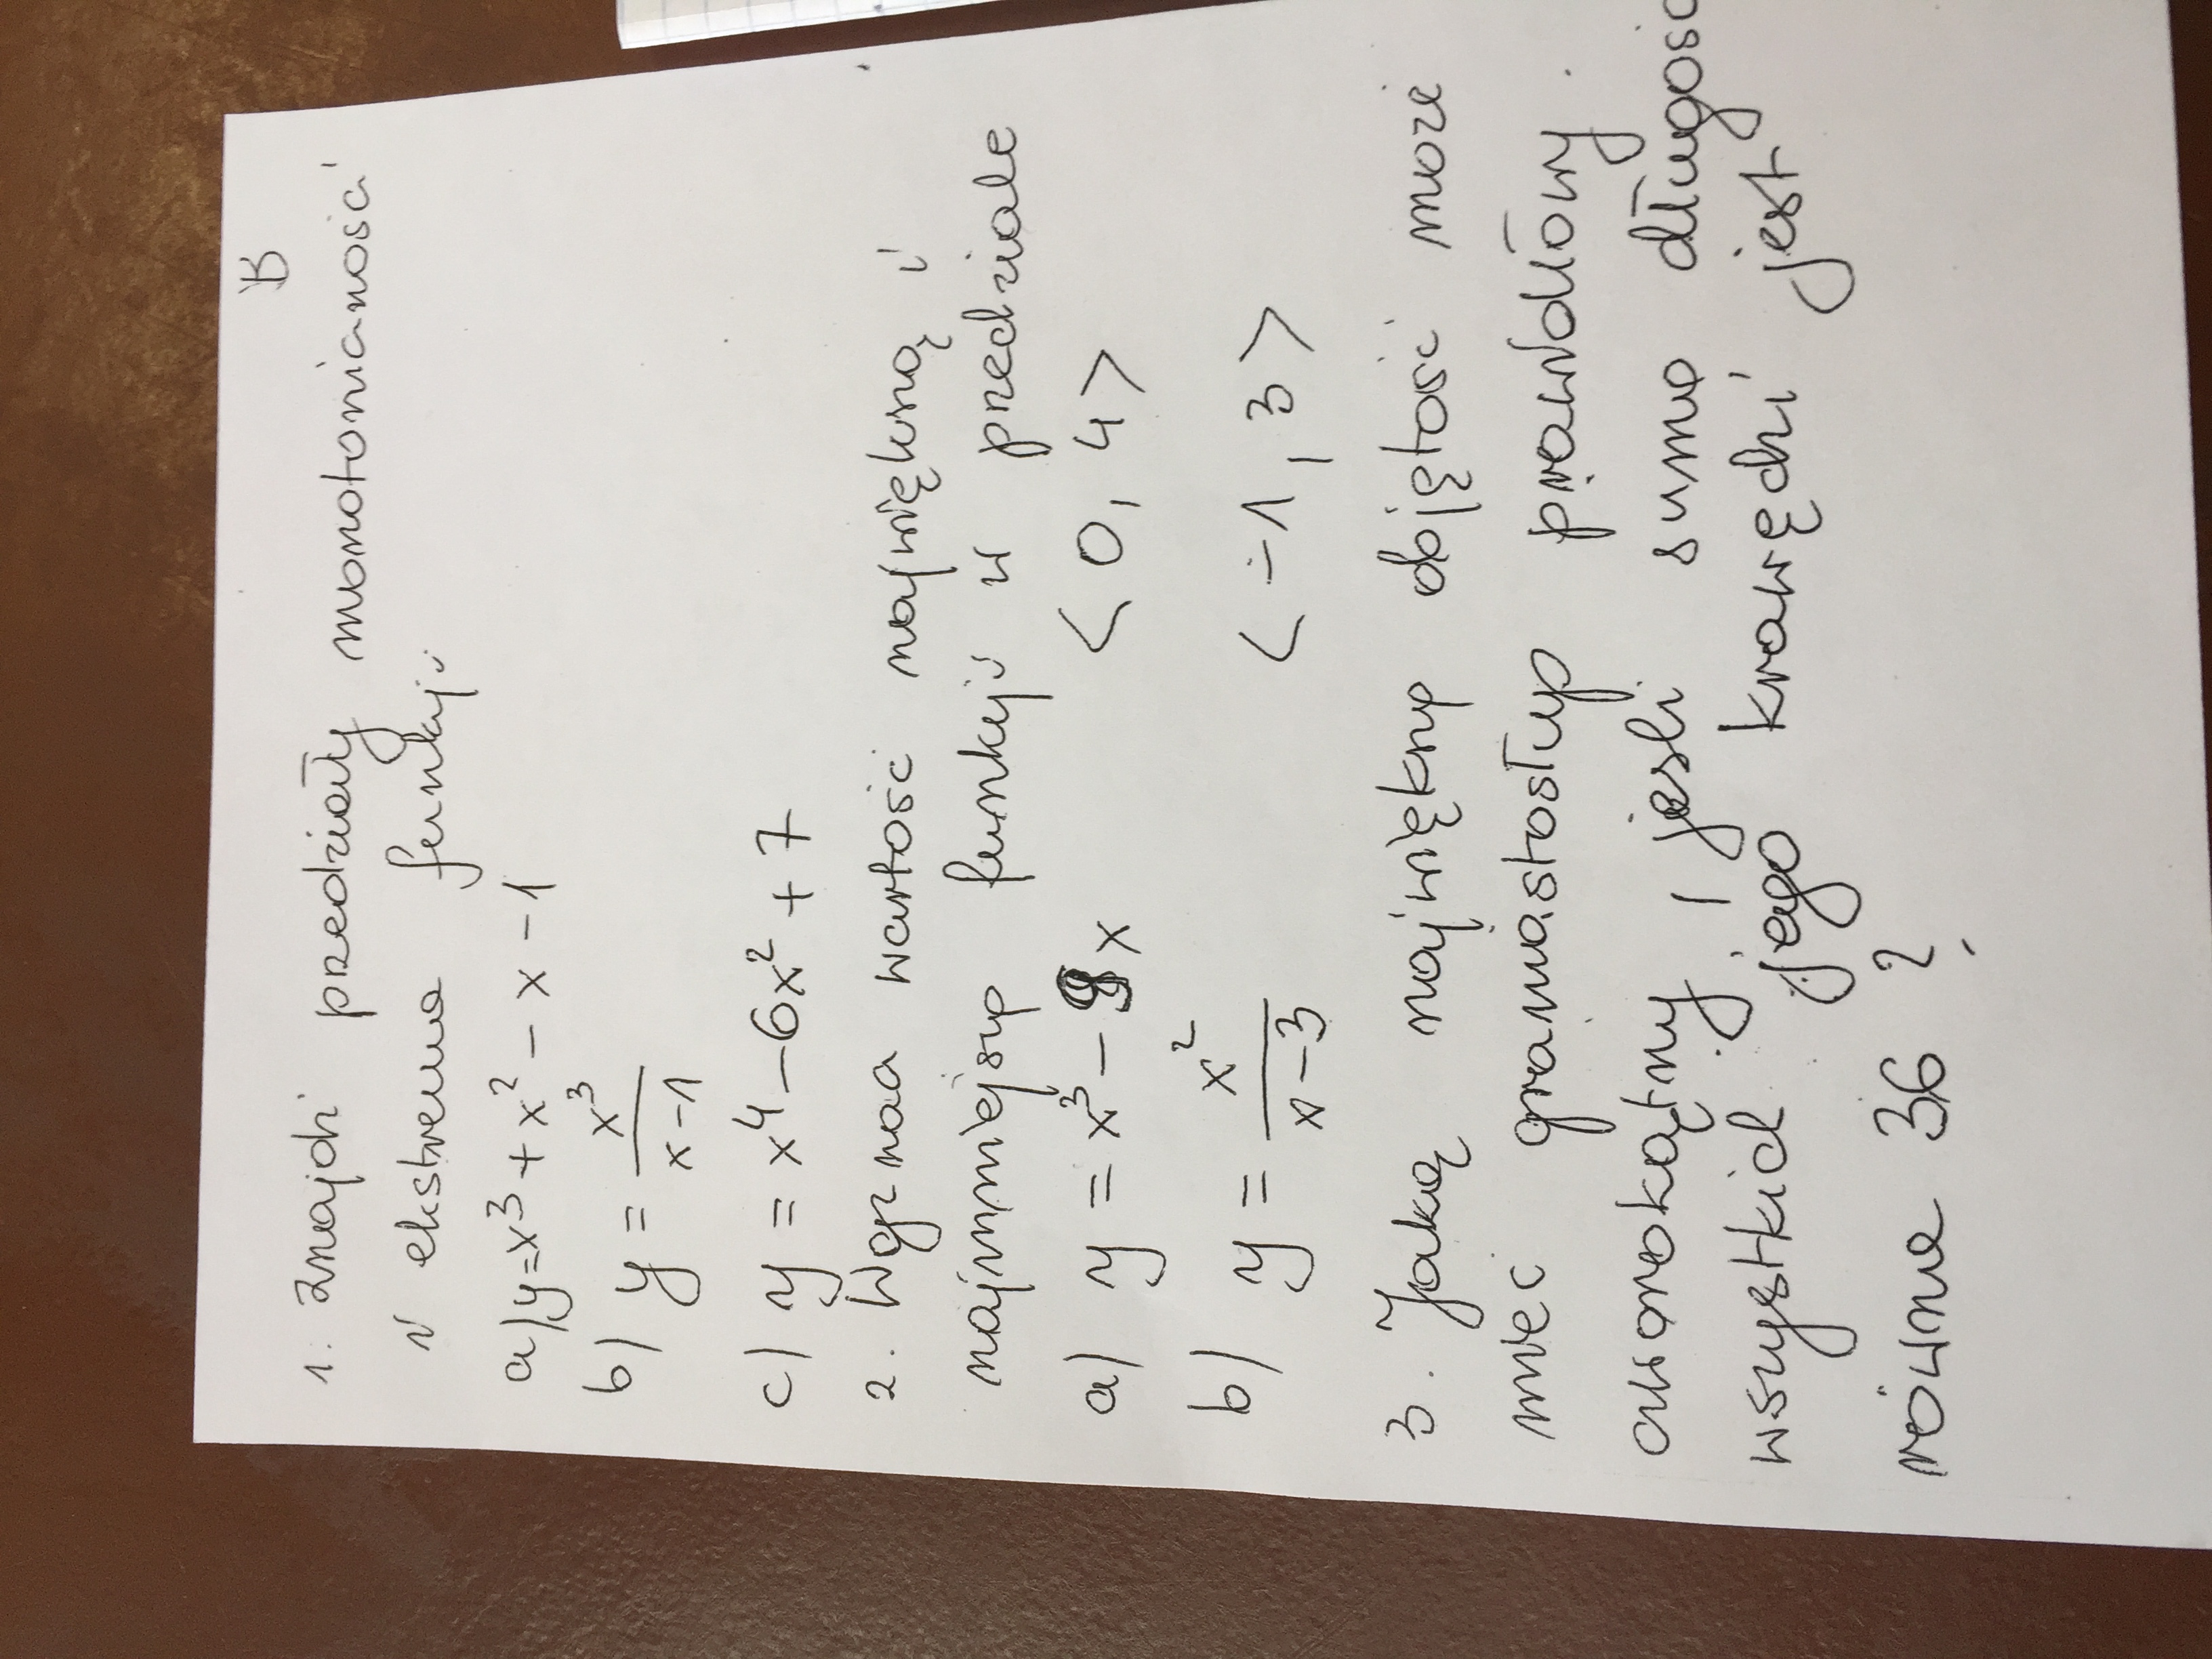 B
1. Znajdź przedziały monotoniczności
i ekstrema funkcji
a) y = x³ + x² - x - 1
b) y = x³ / x-1
c) y = x⁴ - 6x² + 7
2. Wyznacz wartość największą i
najmniejszą funkcji w przedziale
a) y = x³ - 9x <0, 4>
b) y = x² / x-3 <-1, 3>
3. Jaką największą objętość może
mieć graniastosłup prawidłowy
czworokątny, jeśli suma długości
wszystkich jego krawędzi jest
równa 36?